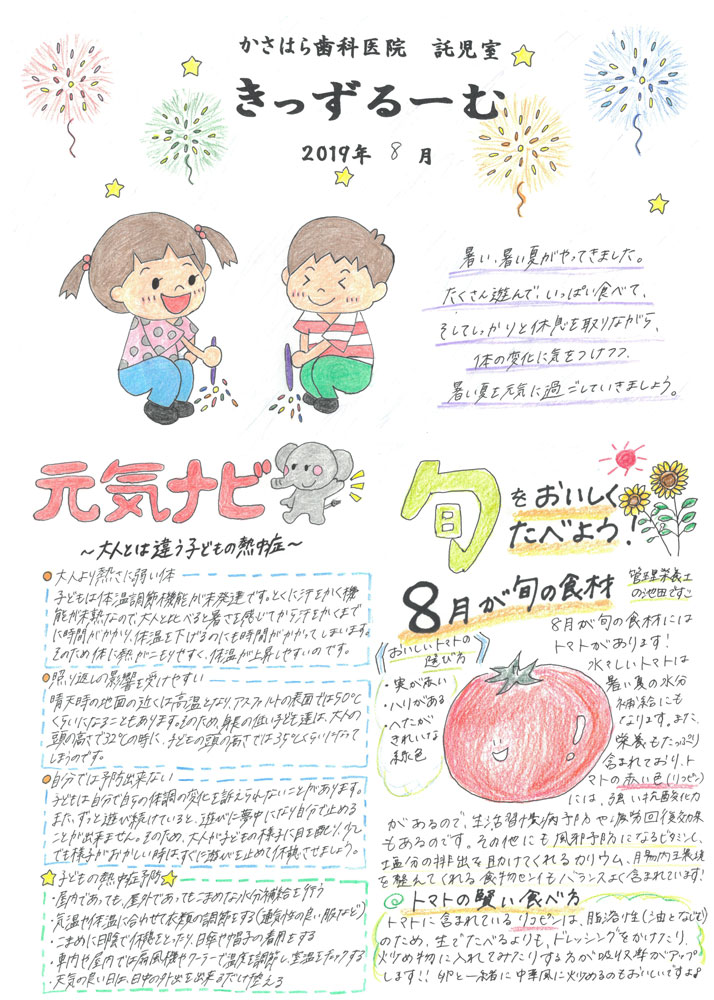 かさはら歯科医院 託児室
きっずるーむ
2019年 8 月
暑い、暑い夏がやってきました。
たくさん遊んで、いっぱい食べて、
そしてしっかりと休息を取りながら、
体の変化に気をつけつつ、
暑い夏を元気に過ごしていきましょう。
元気ナビ
〜大人とは違う子どもの熱中症〜
大人より熱さに弱い体
子どもは体温調節機能が未発達です。とくに汗をかく機
能が未熟なので、大人と比べると暑さを感じてから汗をかくまで
に時間がかかり、体温を下げるのにも時間がかかってしまいます。
そのため体に熱がこもりやすく、体温が上昇しやすいのです。
照り返しの影響を受けやすい
晴天時の地面の近くは高温となり、アスファルトの表面では50℃
くらいになることもあります。そのため、身長の低い子ども達は、大人の
頭の高さで32℃の時に、子どもの頭の高さでは35℃くらい
しまうのです。
自分では予防出来ない
子どもは自分で自らの体調の変化を訴えられないことがあります。
また、ずっと遊び続けていると、遊びに夢中になり自分で止める
ことが出来ません。そのため、大人が子どもの様子に目を配り、少し
でも様子がおかしい時は、すぐに遊びを止めて休憩させましょう。
子どもの熱中症予防
・屋内であっても、屋外であってもこまめな水分補給を行う
・気温や体温に合わせて衣類の調節をする(通気性の良い服など)
・こまめに日陰で休憩をとったり、日傘や帽子の着用をする
・車内や屋内では扇風機やクーラーで温度を調節し、室温をチェックする
・天気の良い日は、日中の外出を出来るだけ控える
旬をおいしく
たべよう!
8月が旬の食材
管理栄養士
の池田です
おいしいトマトの
選び方
・実が赤い
・ハリがある
・へたが
きれいな
緑色
8月が旬の食材には
トマトがあります!
水々しいトマトは
暑い夏の水分
補給にも
なります。また、
栄養もたっぷり
含まれており、ト
マトの赤い色(リコピン)
には、強い抗酸化力
があるので、生活習慣病予防や疲労回復効果
もあるのです。その他にも風邪予防になるビタミンC、
塩分の排出を助けてくれるカリウム、腸内環境
を整えてくれる食物センイもバランスよく含まれています!
トマトの賢い食べ方
トマトに含まれているリコピンは、脂溶性(油となじむ)
のため、生でたべるよりも、ドレッシングをかけたり、
炒め物に入れてみたりする方が吸収率がアップ
します!! 卵と一緒に中華風に炒めるのもおいしいですよ